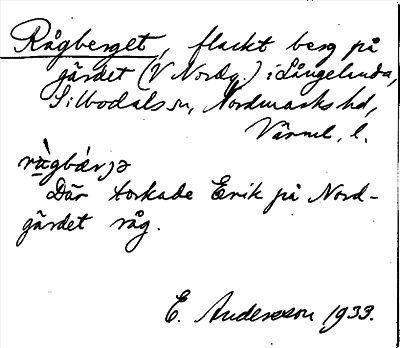 Rågberget, flackt berg på
gärdet (V Nordg.) i Långelanda,
Silbodals sn, Nordmarks hd,
Värml. l.
rɑ̀gbǽrjə
Där torkade Erik på Nord-
gärdet råg.
E. Andersson 1933.